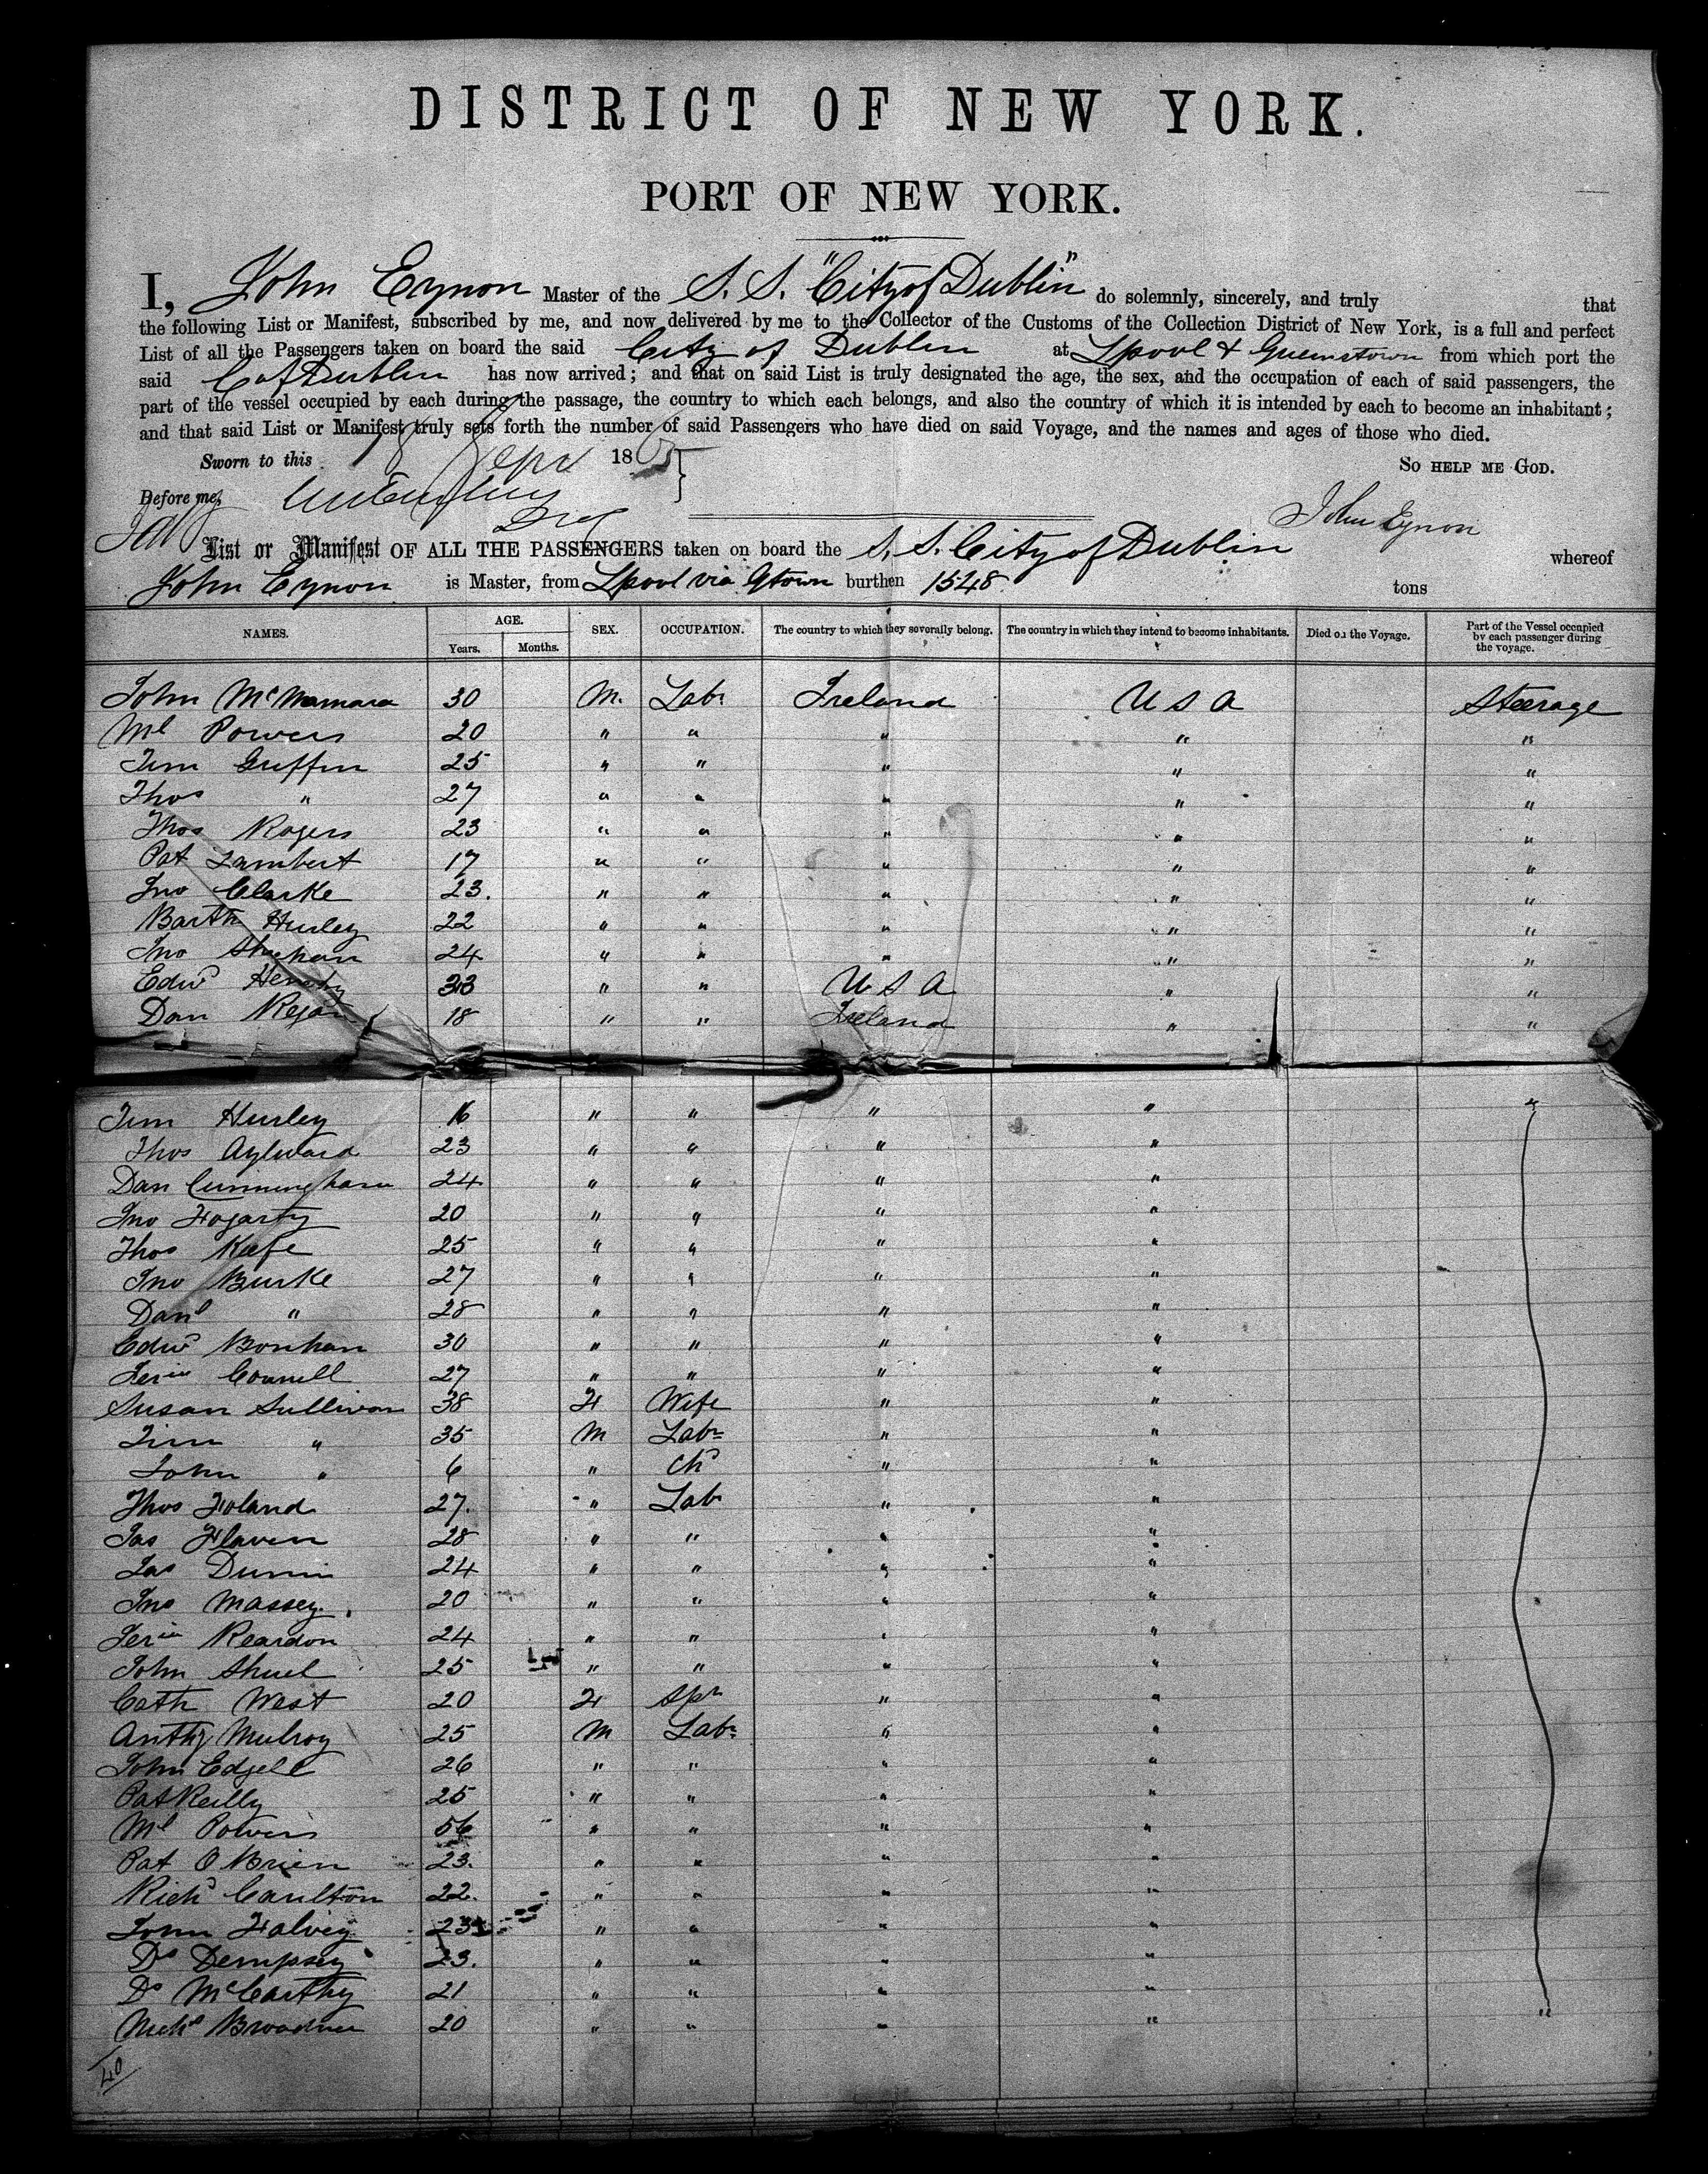 DISTRICT OF NEW YORK.
PORT OF NEW YORK.
I, John Eynon Master of the S. S. "City of Dublin" do solemnly, sincerely, and truly that
the following List or Manifest, subscribed by me, and now delivered by me to the Collector of the Customs of the Collection District of New York, is a full and perfect
List of all the Passengers taken on board the said City of Dublin at Lpool & Queenstown from which port the
said C of Dublin has now arrived; and that on said List is truly designated the age, the sex, and the occupation of each of said passengers, the
part of the vessel occupied by each during the passage, the country to which each belongs, and also the country of which it is intended by each to become an inhabitant;
and that said List or Manifest truly sets forth the number of said Passengers who have died on said Voyage, and the names and ages of those who died.
Sworn to this 18 186 So HELP ME GOD.
Before me,
John Eynon
List or Manifest OF ALL THE PASSENGERS taken on board the S. S. City of Dublin whereof
John Eynon is Master, from Lpool via Qtown burthen 1548 tons
NAMES. AGE. Years. Months. SEX. OCCUPATION. The country to which they severally belong. The country in which they intend to become inhabitants. Died on the Voyage. Part of the Vessel occupied by each passenger during the voyage.
John McNamara 30 M. Labr Ireland U S A Steerage
Ml Powers 20 " " " " "
Tim Griffin 25 " " " " "
Thos " 27 " " " " "
Thos Rogers 23 " " " " "
Pat Lambert 17 " " " " "
Jno Clarke 23. " " " " "
Barth Hurley 22 " " " " "
Jno Sheehan 24 " " " " "
Edwd 33 " " U S A " "
Dan Regan 18 " " Ireland " "
Tim Hurley 16 " " " " "
Thos Aylward 23 " " " "
Dan Cunningham 24 " " " "
Jno Fogarty 20 " " " "
Thos Keefe 25 " " " "
Jno Burke 27 " " " "
Danl " 28 " " " "
Edwd Bonham 30 " " " "
Jeriah Connell 27 " " " "
Susan Sullivan 38 F Wife " "
Tim " 35 M Labr " "
John " 6 " Chd " "
Thos Foland 27. " Lab " "
Jas Flaven 28 " " " "
Jas Dunn 24 " " " "
Jno Massey. 20 " " " "
Jeriah Reardon 24 " " " "
John Shuel 25 " " " "
Cath West 20 F Spr " "
Anthy Mulroy 25 M Labr " "
John Edgell 26 " " " "
Pat Reilly 25 " " " "
Ml Powers 56 " " " "
Pat O'Brien 23. " " " "
Richd Carilton 22. " " " "
John Falvey 23 " " " "
Do Dempsey 23. " " " "
Do McCarthy 21 " " " "
Nichs 20 " " " " "
40